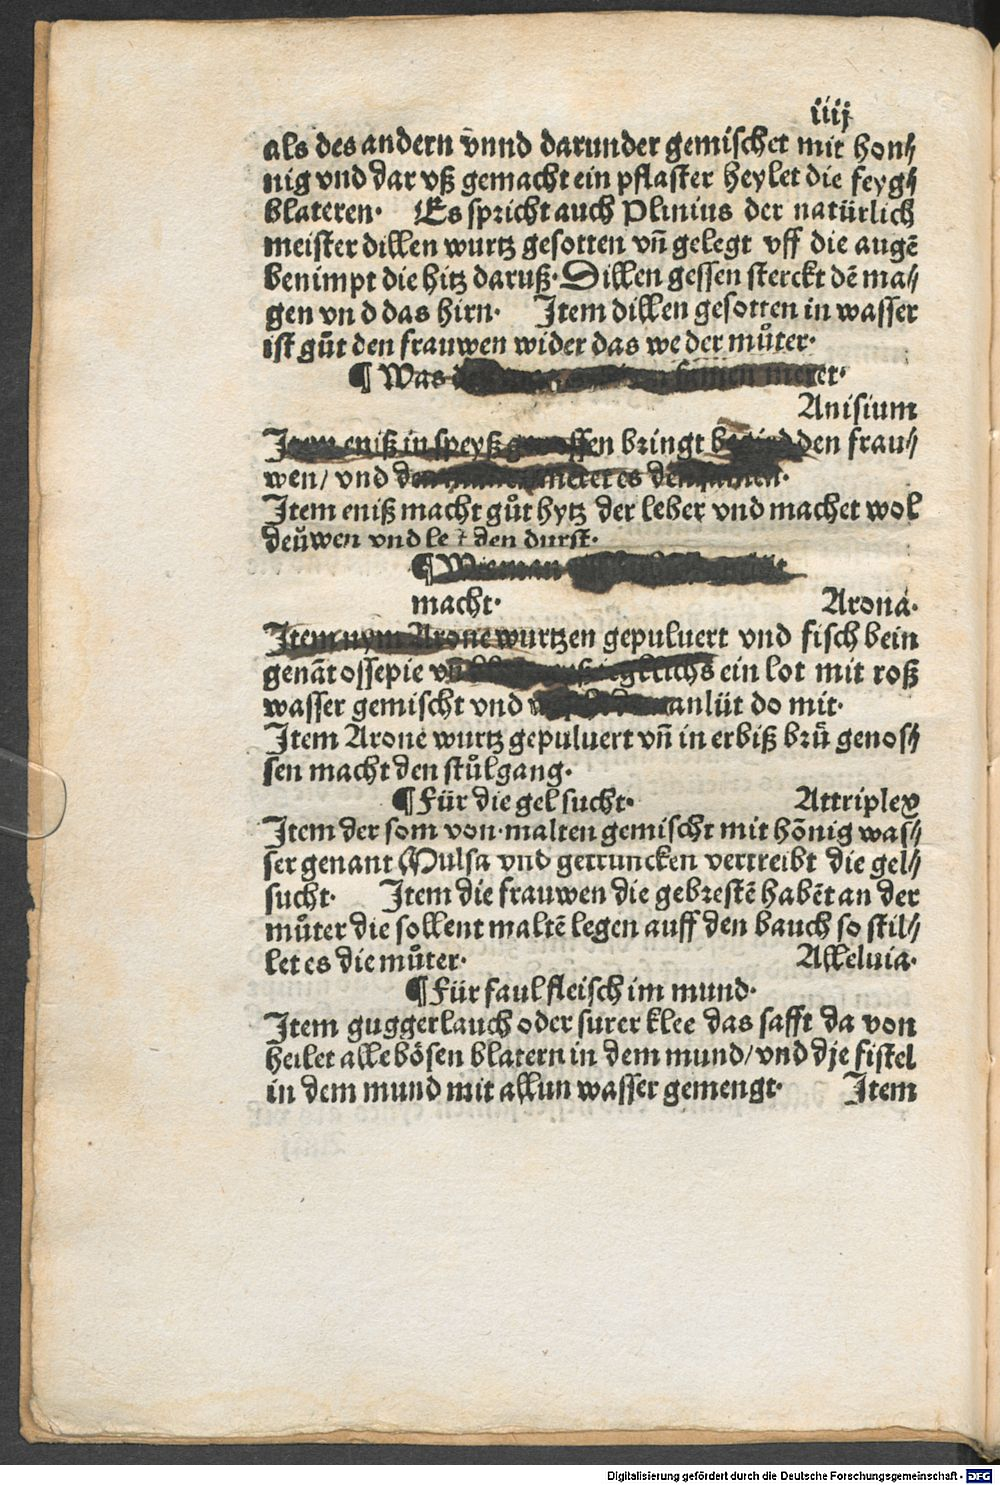 iiij
als des andern v̄nnd darunder gemischet mit hon⸗
nig vnd dar vß gemacht ein pflaster heylet die feyg⸗
blateren. Es spricht auch Plinius der natürlich
meister dillen wurtz gesotten vn̄ gelegt vff die augē
benimpt die hitz daruß. Dillen gessen sterckt dē ma⸗
gen vnd das hirn. Item dillen gesotten in wasser
ist gůt den frauwen wider das we der můter.
¶ Was meret.
Anisium
Item eniß in speyß genossen bringt den frau⸗
wen/ vnd den meret es den samen.
Item eniß macht gůt hytz der leber vnd machet wol
deüwen vnd den durst.
¶ Wie man
macht. Arona.
Item nym Arone wurtzen gepuluert vnd fisch bein
genāt ossepie vn̄ yeglichs ein lot mit roß
wasser gemischt vnd anlüt do mit.
Item Arone wurtz gepuluert vn̄ in erbiß brü genos⸗
sen macht den stůlgang.
¶ Für die gel sucht. Attriplex
Item der som von malten gemischt mit hōnig was⸗
ser genant Mulsa vnd getruncken vertreibt die gel⸗
sucht. Item die frauwen die gebrestē habēt an der
můter die sollent maltē legen auff den bauch so stil⸗
let es die můter. Alleluia.
¶ Für faul fleisch im mund.
Item guggerlauch oder surer klee das safft da von
heilet alle bösen blatern in dem mund/ vnd dje fistel
in dem mund mit allun wasser gemengt. Item
Digitalisierung gefördert durch die Deutsche Forschungsgemeinschaft - DFG